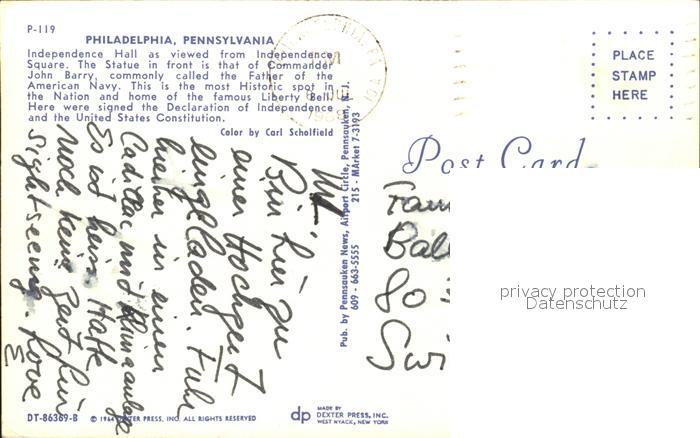 P-119
PHILADELPHIA, PENNSYLVANIA
Independence Hall as viewed from Independence
Square. The Statue in front is that of Commander
John Barry, commonly called the Father of the
American Navy. This is the most Historic spot in
the Nation and home of the famous Liberty Bell.
Here were signed the Declaration of Independence
and the United States Constitution.
Color by Carl Scholfield
Bin hier zu
einer Hochzeit
eingeladen. Fuhr
hieher in einem
Cadillac mit Klimaanlage
Es ist heiss. Hatte
noch keine Zeit für
Sightseeing. Love
E
Pub. by Pennsauken News, Airport Circle, Pennsauken, N. J.
609 - 663-5555 215 - MArket 7-3193
PLACE
STAMP
HERE
Post Card
Fam
Bal
80
Swi
privacy protection
Datenschutz
DT-86369-B
© 1964 DEXTER PRESS, INC. ALL RIGHTS RESERVED
dp
MADE BY
DEXTER PRESS, INC.
WEST NYACK, NEW YORK